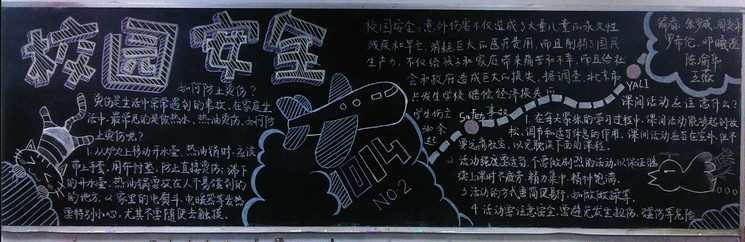 校园安全
如何防止烫伤?
烫伤是生活中常常遇到的事故,在家庭生
活中,最常见的是被热水、热油烫伤,如何防
止烫伤呢?
1.从炉火上移动开水壶、热油锅时,应该
带上手套,用布衬垫,防止直接烫伤;端下
的开水壶、热油锅要放在人不易碰到的
的地方。2.家里的电熨斗、电暖器等发热
要特别小心,尤其不要随便去触摸。
校园安全,意外伤害不仅造成了大量儿童的永久性
残疾和早亡,消耗巨大的医疗费用,而且削弱了国民
生产力,不仅给孩子和家庭带来痛苦和不幸,而且给社
会和政府造成巨大的损失。据调查,北京市
1014
NO.2
Safety
YALI
陈甯华
课间活动应当注意什么?
1.在每天紧张的学习过程中,课间活动能够起到放
松、调节和适当休息的作用。课间活动应当在室外,但不
要远离教室,以免耽误下面的课程。
2.活动强度要适当,不要做剧烈的活动,以保证继
续上课时不疲劳、精力集中、精神饱满。
3.活动的方式要简便易行,如做做操等。
4.活动要注意安全,要避免发生扭伤、碰伤等危险